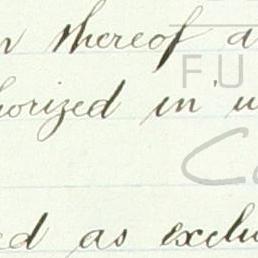 n thereof a
FU
horized in u
Co
ed as exclu